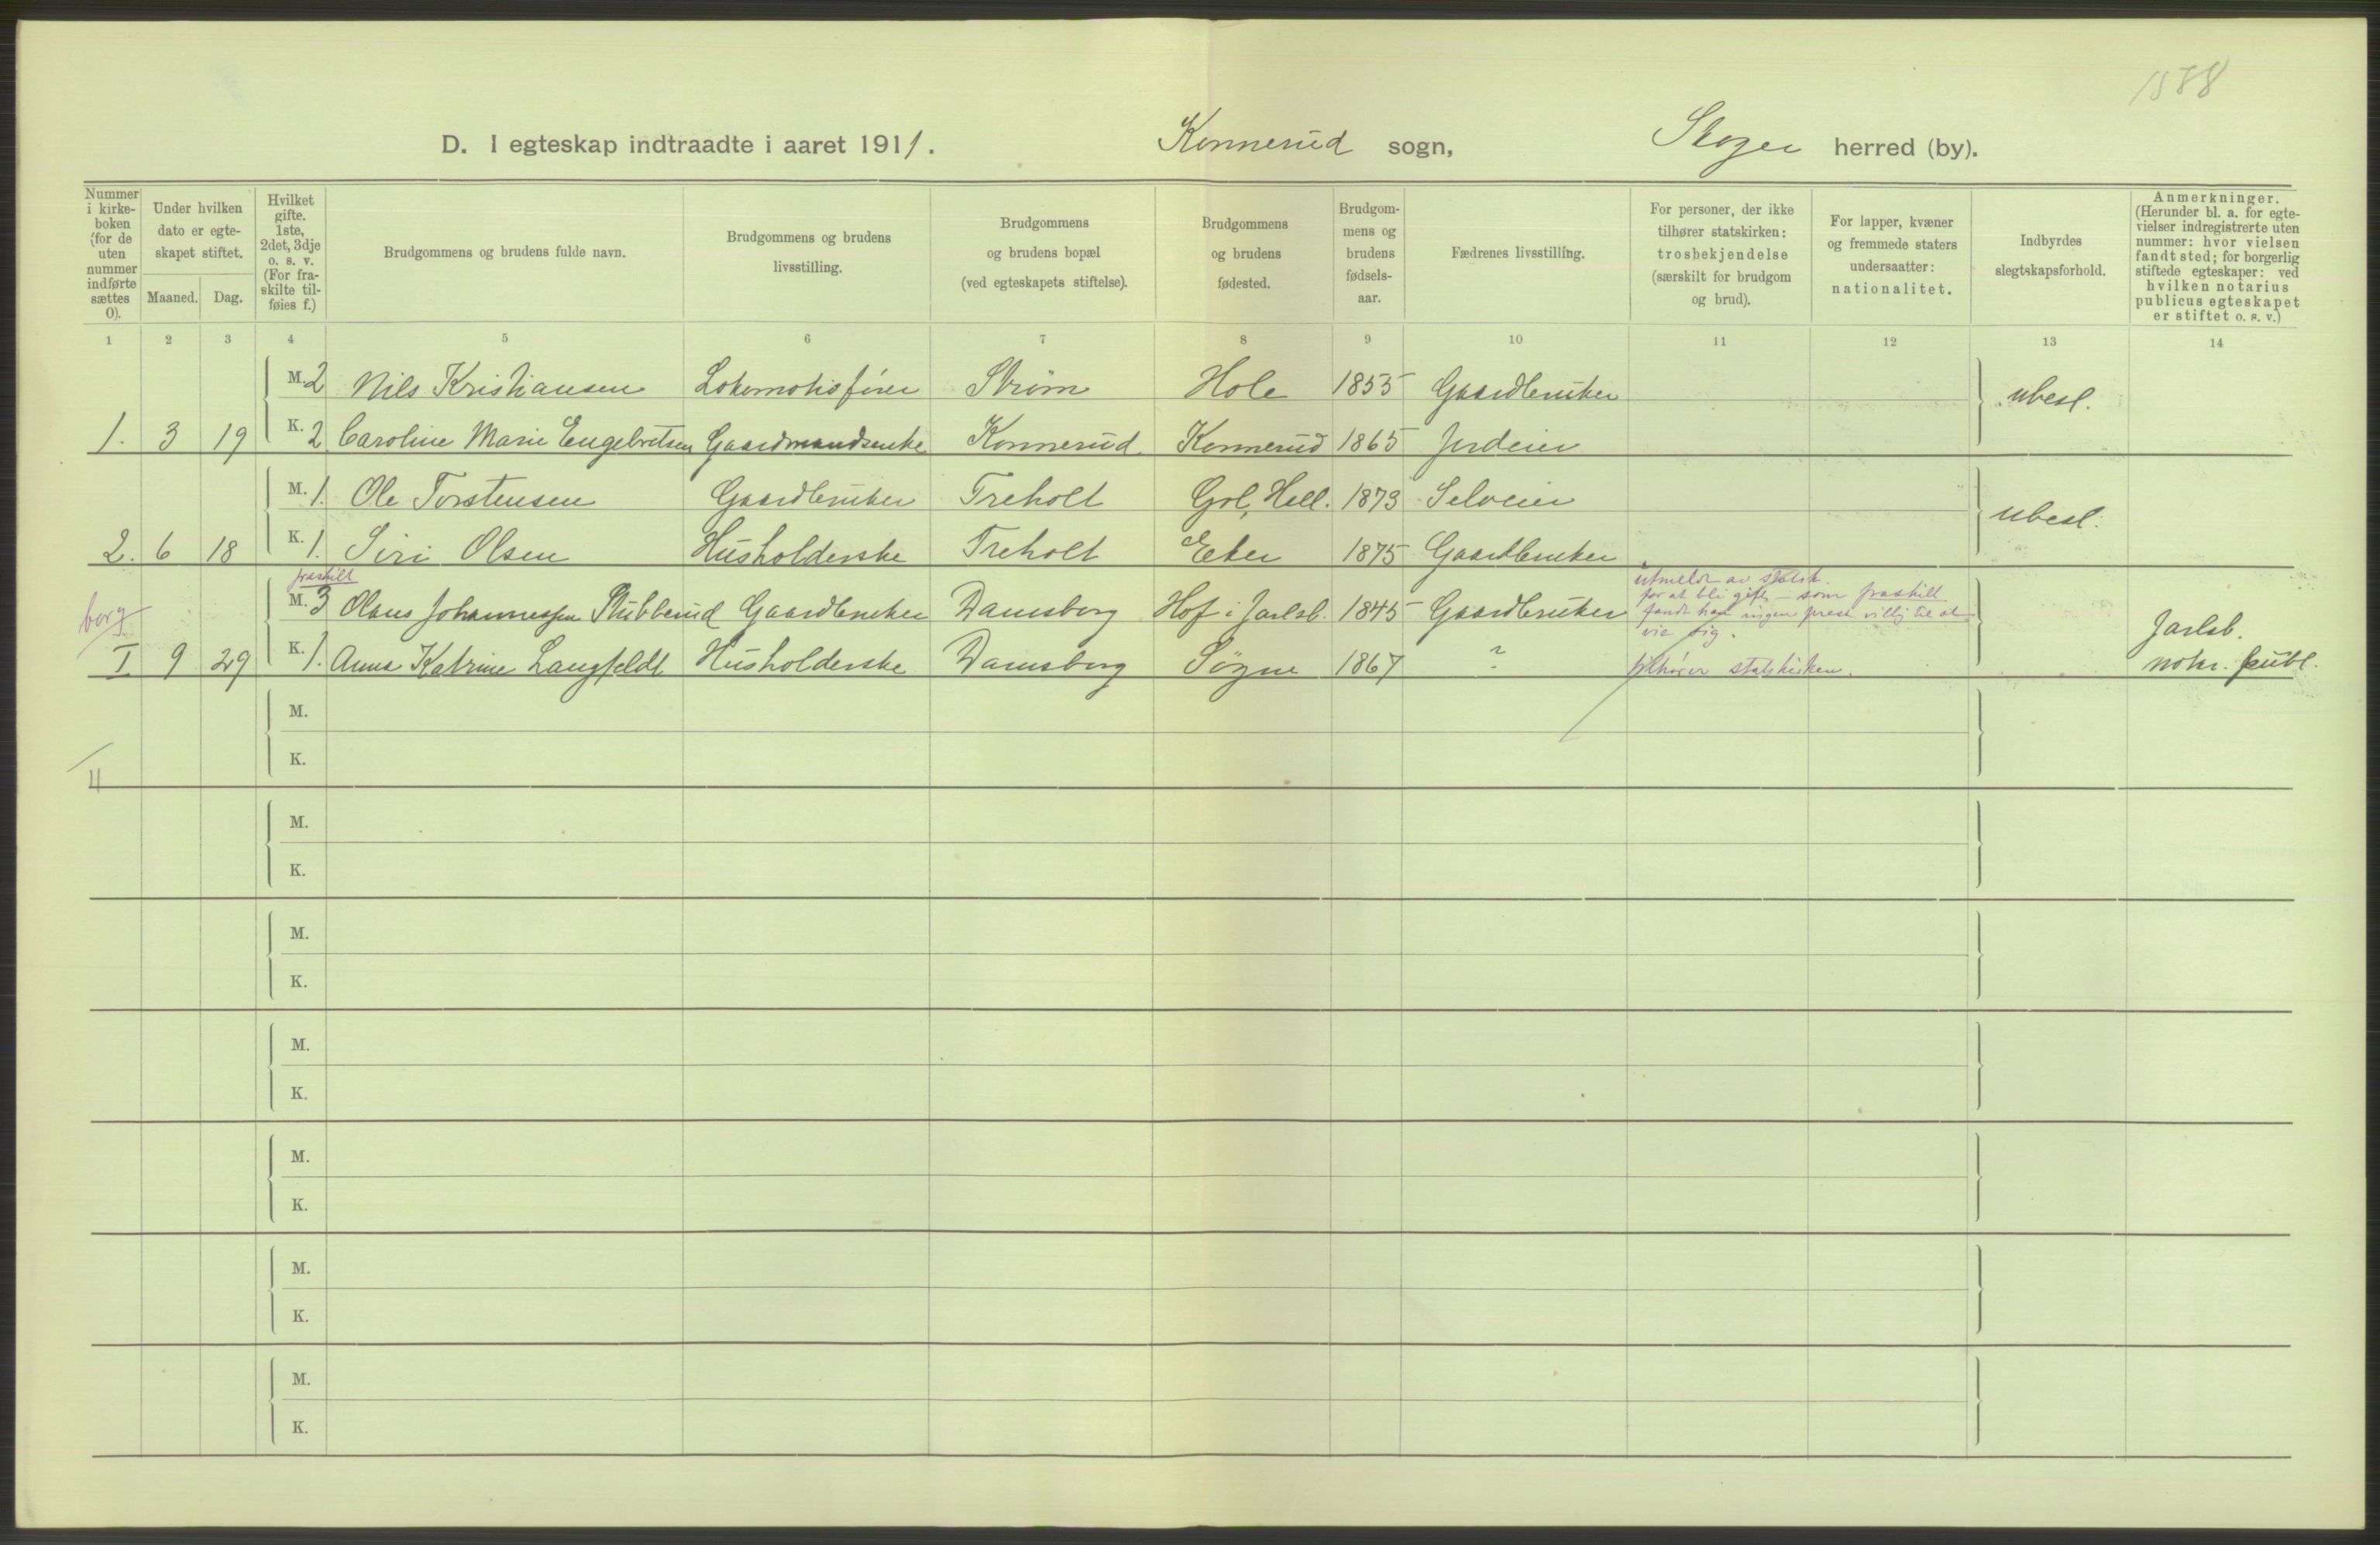 1588
D. I egteskap indtraadte i aaret 1911. Konnerud sogn, Skoger herred (by).
Nummer i kirke-boken (for de uten nummer indførte sættes 0).
Under hvilken dato er egte-skapet stiftet.
Maaned. Dag.
Hvilket gifte. 1ste, 2det, 3dje o. s. v. (For fra-skilte til-føies f.)
Brudgommens og brudens fulde navn.
Brudgommens og brudens livsstilling.
Brudgommens og brudens bopæl (ved egteskapets stiftelse).
Brudgommens og brudens fødested.
Brudgom-mens og brudens fødsels-aar.
Fædrenes livsstilling.
For personer, der ikke tilhører statskirken: trosbekjendelse (særskilt for brudgom og brud).
For lapper, kvæner og fremmede staters undersaatter: nationalitet.
Indbyrdes slegtskapsforhold.
Anmerkninger. (Herunder bl. a. for egte-vielser indregistrerte uten nummer: hvor vielsen fandt sted; for borgerlig stiftede egteskaper: ved hvilken notarius publicus egteskapet er stiftet o. s. v.)
1 2 3 4 5 6 7 8 9 10 11 12 13 14
M. 2 Nils Kristiansen Lokomotivfører Strøm Hole 1855 Gaardbruker ubesl.
1. 3 19 K. 2 Caroline Marie Engebretsen Gaardmandsenke Konnerud Konnerud 1865 Jordeier
M. 1. Ole Torstensen Gaardbruker Treholt Gol, Hall. 1873 Selveier ubesl.
2. 6 18 K. 1. Siri Olsen Husholderske Treholt Eker 1875 Gaardbruker
fraskilt
borg M. 3 Olaus Johannessen Stubberud Gaardbruker Damsborg Hof i Jarlsb. 1845 Gaardbruker
utmeldt av statsk.
for at bli gift, - som fraskilt
fandt han ingen prest villig til at
vie sig.
Jarlsb.
I 9 29 K. 1. Anna Katrine Langfeldt Husholderske Damsborg Søgne 1867 ? tilhører statskirken. notar. publ.
M.
K.
4
M.
K.
M.
K.
M.
K.
M.
K.
M.
K.
M.
K.